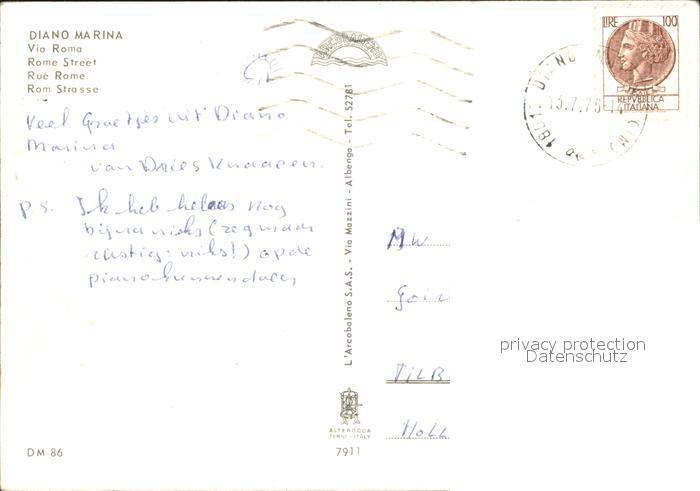 DIANO MARINA
Via Roma
Rome Street
Rue Rome
Rom Strasse
Veel Groetjes uit Diano
Marina
van Dries Knaapen.
p.s. Ik heb helaas nog
bijna niks (zeg maar
rustig: niks!) op de
piano kunnen doen
L'Arcobaleno S.A.S. - Via Mazzini - Albenga - Tel. 52781
ALTEROCCA
TERNI - ITALY
DM-86
7911
LIRE 100
REPVBBLICA
ITALIANA
18013 DIANO
15.7.75-14
(IM)
MW
Goir
TILB
HOLL
privacy protection
Datenschutz